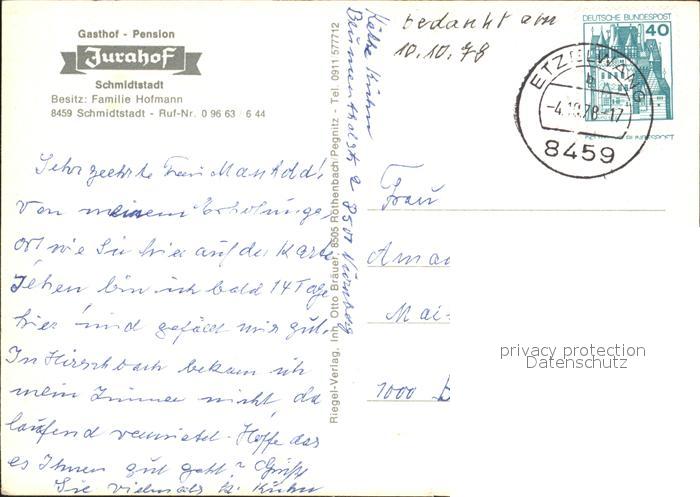 Gasthof - Pension
Jurahof
Schmidtstadt
Besitz: Familie Hofmann
8459 Schmidtstadt - Ruf-Nr. 0 96 63 / 6 44
Sehr geehrte Frau
Von meinem Erholungs,
ort wie Sie hier auf der Karte
sehen bin ich bald 14 Tage
hier und gefällt mir gut.
In Hirschbach bekam ich
mein Zimmer nicht da
laufend vermietet. Hoffe das
es Ihnen gut geht? Grüße
Sie vielmals K. Kühn
Riegel-Verlag, Inh. Otto Bräuer, 8505 Röthenbach/Pegnitz - Tel. 0911 577712
Käthe Kühn
2 8501 Nürnberg
bedankt am
10.10.78
DEUTSCHE BUNDESPOST
40
ETZELWANG
b
-4.10.78-17
8459
Frau
Aman
Mai
1000 B
privacy protection
Datenschutz